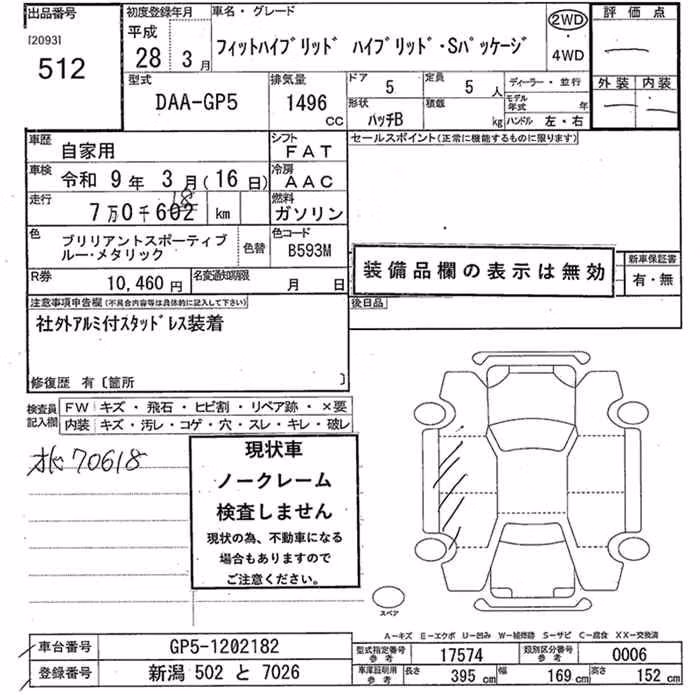 出品番号
[2093]
512
初度登録年月
平成
28 3月
車名・グレード
フィットハイブリッド ハイブリッド・Sパッケージ
2WD
4WD
評価点
外装 内装
型式
DAA-GP5
排気量
1496
CC
ドア
5
定員
5 人
形状
ハッチB
積載
kg
ディーラー・並行
モデル年式 年
ハンドル 左・右
車歴
自家用
シフト
FAT
車検
令和 9年 3月(16日)
冷房
AAC
走行
7万0千602 km
18
燃料
ガソリン
色
ブリリアントスポーティブ
ルー・メタリック
色替
色コード
B593M
R券
10,460円
名変通知期限
月 日
セールスポイント(正常に機能するものに限ります)
装備品欄の表示は無効
新車保証書
有・無
後日品
注意事項申告欄(不具合内容等は具体的に記入して下さい)
社外アルミ付スタッドレス装着
修復歴 有〔箇所 〕
検査員
記入欄
FW キズ・飛石・ヒビ割・リペア跡・×要
内装 キズ・汚レ・コゲ・穴・スレ・キレ・破レ
70618
現状車
ノークレーム
検査しません
現状の為、不動車になる
場合もありますので
ご注意ください。
スペア
A-キズ E-エクボ U-凹み W-補修跡 S-サビ C-腐食 XX-交換済
車台番号
GP5-1202182
登録番号
新潟 502 と 7026
型式指定番号
参考
17574
類別区分番号
参考
0006
車庫証明用
参考
長さ 395cm 幅 169cm 高さ 152cm